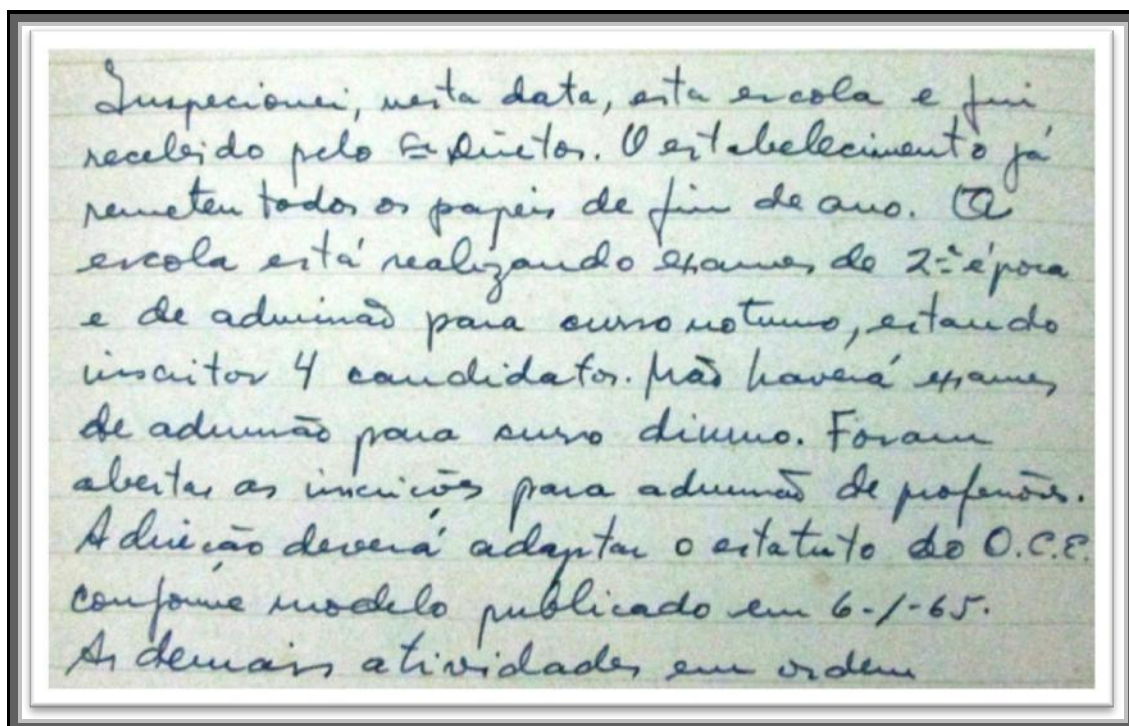 Inspecionei, nesta data, esta escola e fui
recebido pelo Sr. Diretor. O estabelecimento já
remeteu todos os papeis de fim de ano. A
escola está realizando exames de 2ª época
e de admissão para curso noturno, estando
inscritos 4 candidatos. Não haverá exames
de admissão para curso diurno. Foram
abertas as inscrições para admissão de professores.
A direção deverá adaptar o estatuto do O.C.E.
conforme modelo publicado em 6-1-65.
As demais atividades em ordem